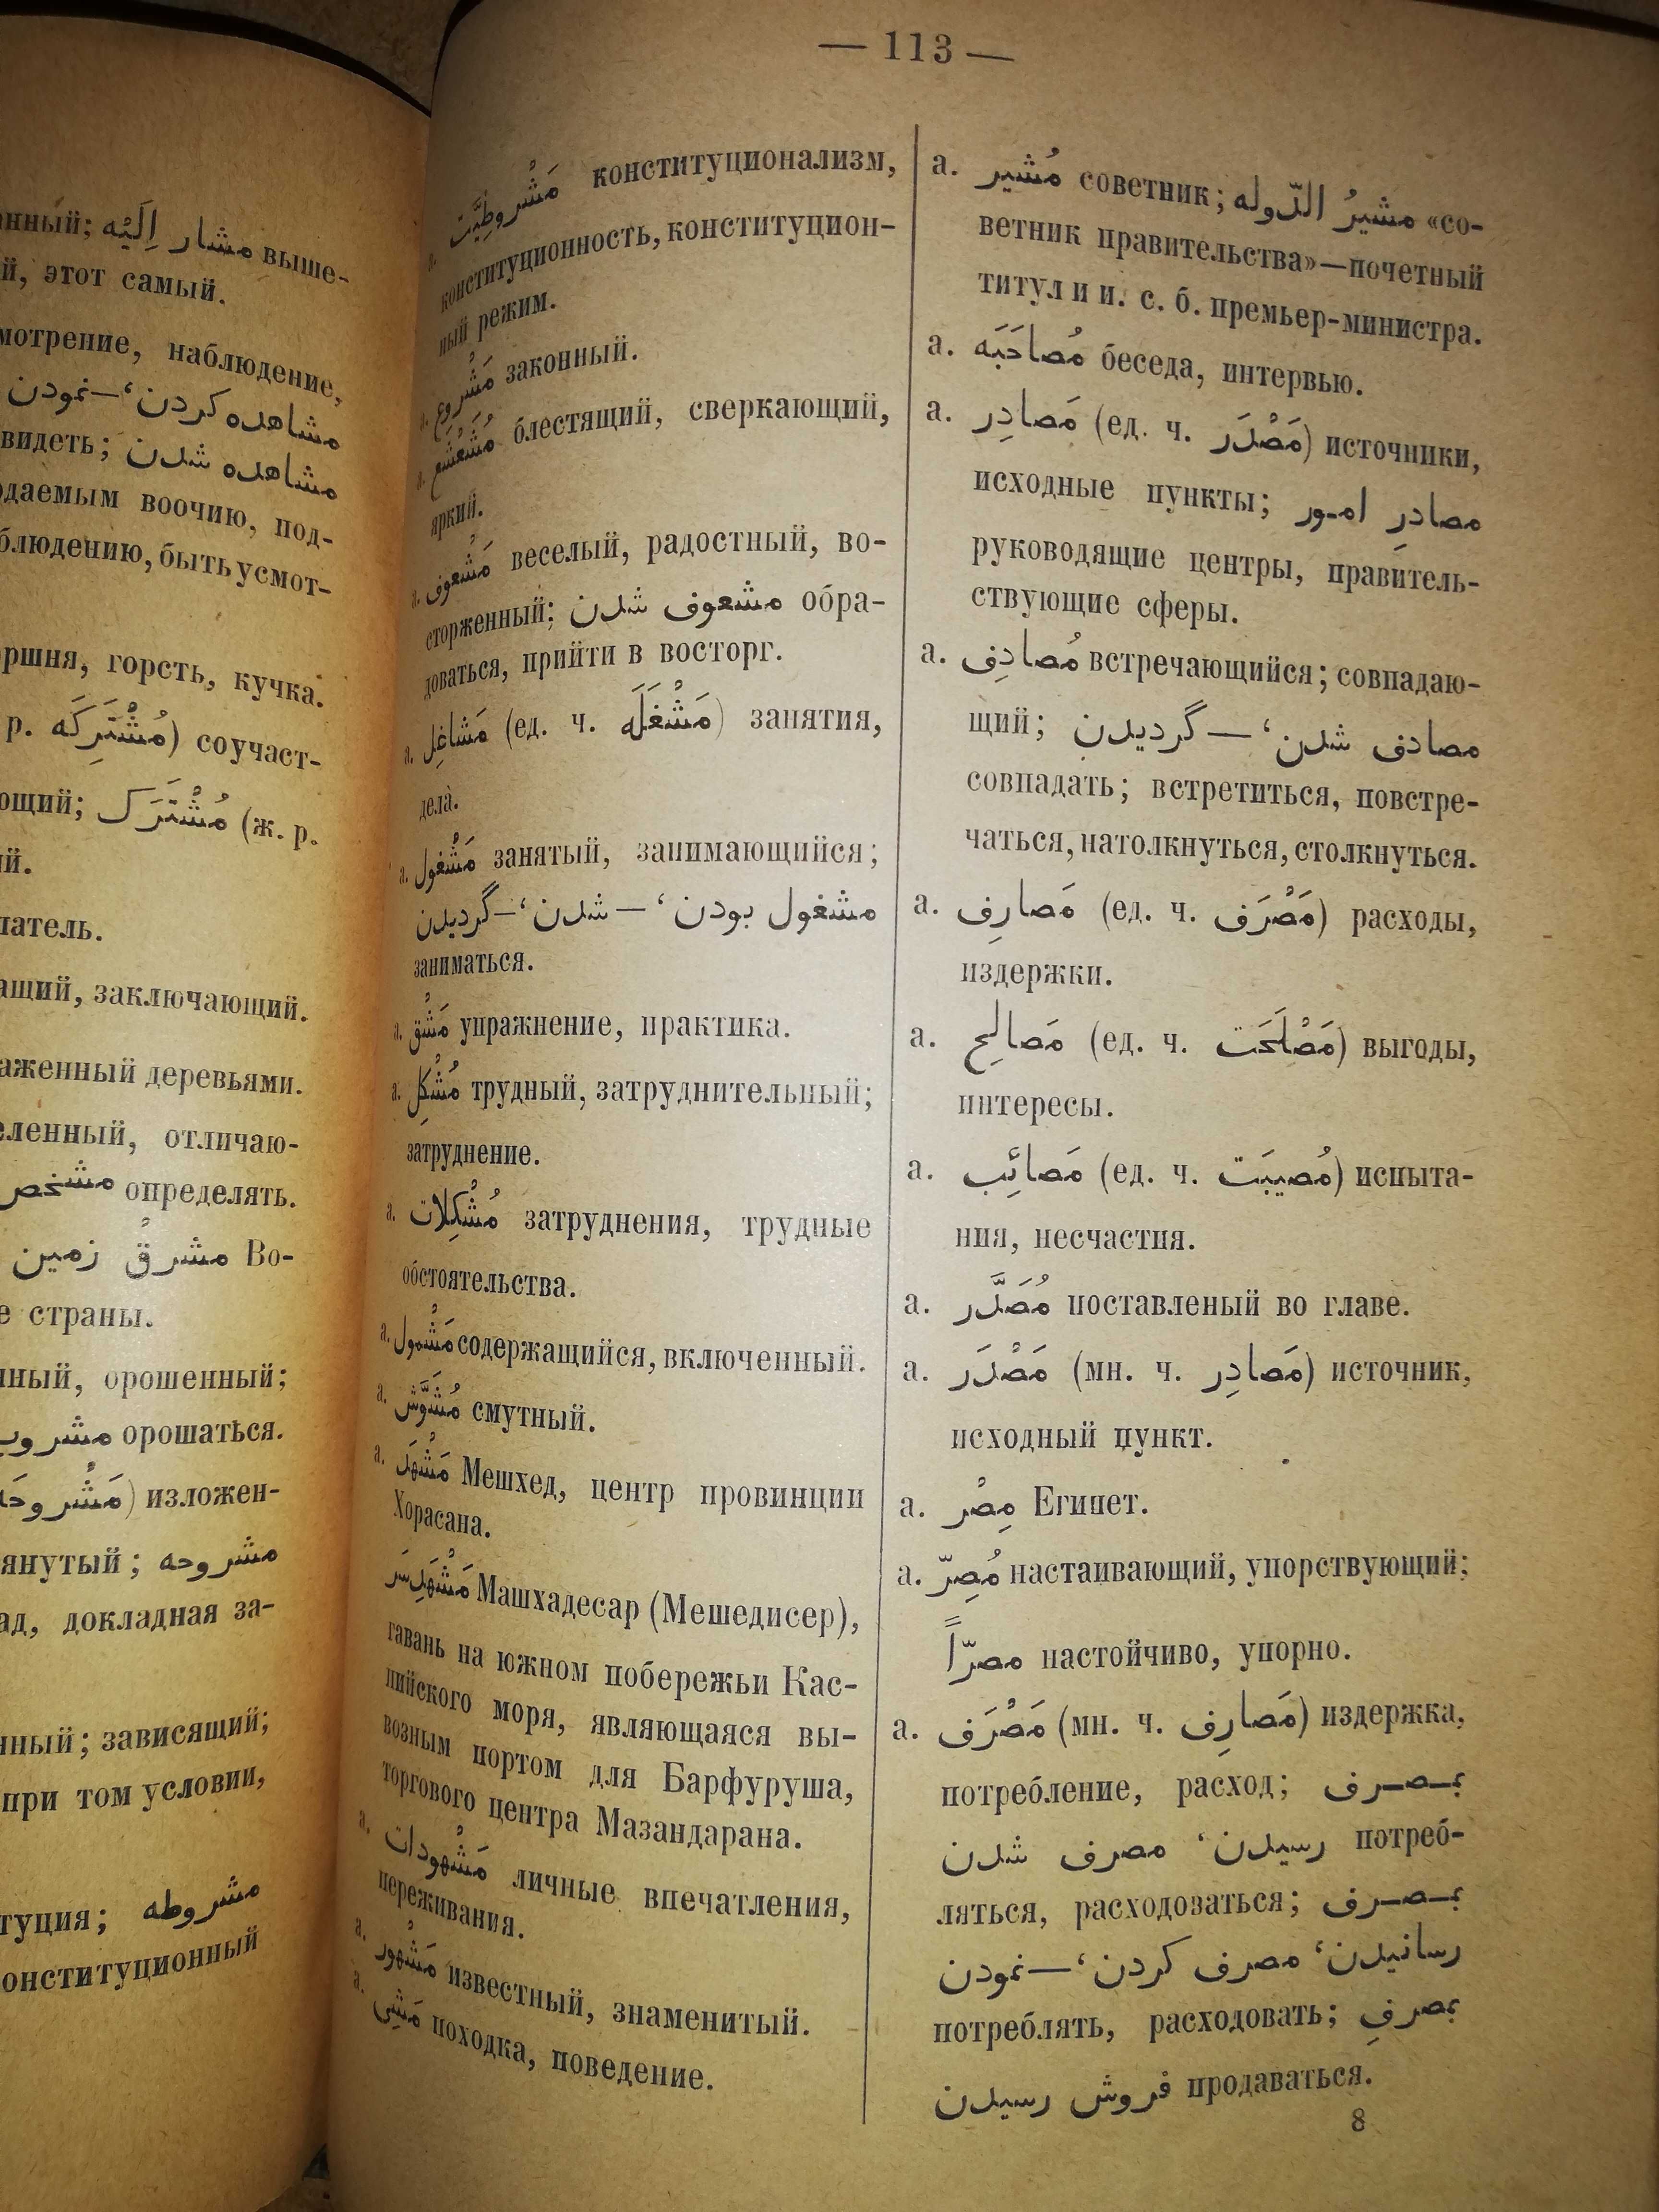 нный; مشار اِلَيْه выше-
й, этот самый.
мотрение, наблюдение,
مشاهده کردن،—نمودن
видеть; مشاهده شدن
даемым воочию, под-
блюдению, быть усмот-
ршня, горсть, кучка.
р. مُشْتَرِكَه) соучаст-
ющий; مُشْتَرَك (ж. р.
й.
атель.
ащий, заключающий.
аженный деревьями.
еленный, отличаю-
مشخص определять.
مشرق زمین Во-
е страны.
нный, орошенный;
орошаться.
(مَشْروحَه) изложен-
янутый; مشروحه
ад, докладная за-
нный; зависящий;
при том условии,
туция; مشروطه
онституционный
— 113 —
a. مَشْروطِيَّت конституционализм,
конституционность, конституцион-
ный режим.
a. مَشْروع законный.
a. مُشَعْشَع блестящий, сверкающий,
яркий.
a. مَشْعوف веселый, радостный, во-
сторженный; مشعوف شدن обра-
доваться, прийти в восторг.
a. مَشاغِل (ед. ч. مَشْغَلَه) занятия,
дела.
a. مَشْغول занятый, занимающийся;
مشغول بودن،—شدن،—گردیدن
заниматься.
a. مَشْق упражнение, практика.
a. مُشْكِل трудный, затруднительный;
затруднение.
a. مُشْكِلات затруднения, трудные
обстоятельства.
a. مَشْمول содержащийся, включенный.
a. مُشَوَّش смутный.
a. مَشْهَد Мешхед, центр провинции
Хорасана.
مَشْهَدِسَر Машхадесар (Мешедисер),
гавань на южном побережьи Кас-
пийского моря, являющаяся вы-
возным портом для Барфуруша,
торгового центра Мазандарана.
a. مَشْهودات личные впечатления,
переживания.
a. مَشْهور известный, знаменитый.
a. مَشِى походка, поведение.
a. مُشير советник; مشيرُ الدّوله «со-
ветник правительства»—почетный
титул и и. с. б. премьер-министра.
a. مُصاحَبَه беседа, интервью.
a. مَصادِر (ед. ч. مَصْدَر) источники,
исходные пункты; مصادرِ امور
руководящие центры, правитель-
ствующие сферы.
a. مُصادِف встречающийся; совпадаю-
щий; مصادف شدن،—گردیدن
совпадать; встретиться, повстре-
чаться, натолкнуться, столкнуться.
a. مَصارِف (ед. ч. مَصْرَف) расходы,
издержки.
a. مَصالِح (ед. ч. مَصْلَحَت) выгоды,
интересы.
a. مَصائِب (ед. ч. مُصيبَت) испыта-
ния, несчастия.
a. مُصَدَّر поставленый во главе.
a. مَصْدَر (мн. ч. مَصادِر) источник,
исходный пункт.
a. مِصْر Египет.
a. مُصِرّ настаивающий, упорствующий;
مصرّاً настойчиво, упорно.
a. مَصْرَف (мн. ч. مَصارِف) издержка,
потребление, расход; بمصرف
رسیدن، مصرف شدن потреб-
ляться, расходоваться; بمصرف
رسانیدن، مصرف کردن،—نمودن
потреблять, расходовать; بمصرفِ
فروش رسیدن продаваться.
8